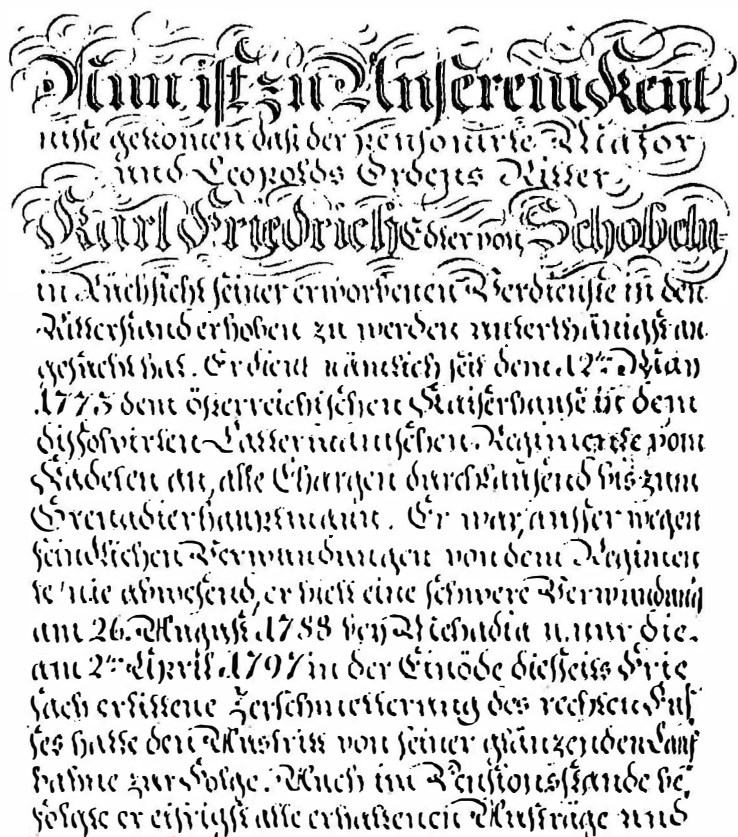 Nun ist zu Unserem̅ Kent
nisse gekom̅en daß der pensonirte Major
und Leopolds Ordens Ritter
Karl Friedrich Edler von Schobeln
in Rücksicht seiner erworbenen Verdienste in den
Ritterstand erhoben zu werden unterthänigst an
gesucht hat. Er dient nämlich seit dem 12ten May
1773 dem österreichischen Kaiserhause in dem
dissolvirten Lattermannschen Regimente vom
Kadeten an, alle Chargen durchlaufend bis zum
Grenadierhauptmann. Er war, ausser wegen
feindlichen Verwundungen von dem Regimen
te nie abwesend, er hielt eine schwere Verwundung
am 26. August 1788 bey Mehadia u. nur die
am 2ten April 1797 in der Einöde diesseits Frie
sach erlittene Zerschmetterung des rechten Fus
ses hatte den Austritt von seiner glänzenden Lauf
bahne zur Folge. Auch im Pensionsstande be
folgte er eifrigst alle erhaltenen Aufträge und